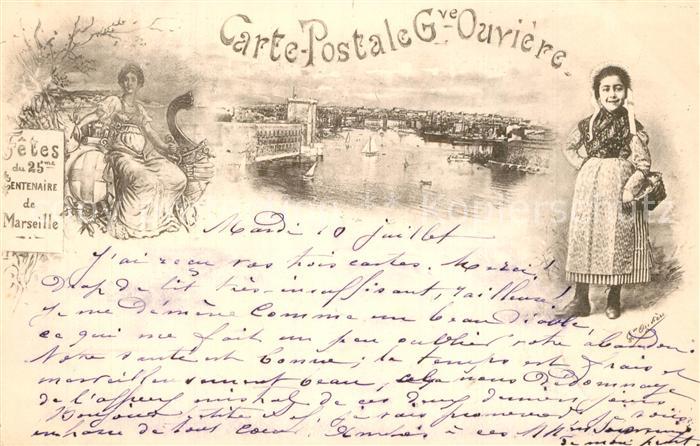 Carte-Postale Gve Ouvière.
Fêtes
du 25me
CENTENAIRE
de
Marseille
Mardi 10 juillet
J'ai reçu vos trois cartes. Merci!
Drap de lit très insuffisant, tailleur!
Je me démène comme un beau diable,
ce qui me fait un peu oublier votre abandon.
Notre santé est bonne; le temps est frais et
merveilleusement beau, cela nous dédommage
de l'affreux mistral de ces deux derniers jours.
Bonjour petite je vais promener
embrasse de tout cœur. Amitiés à ces